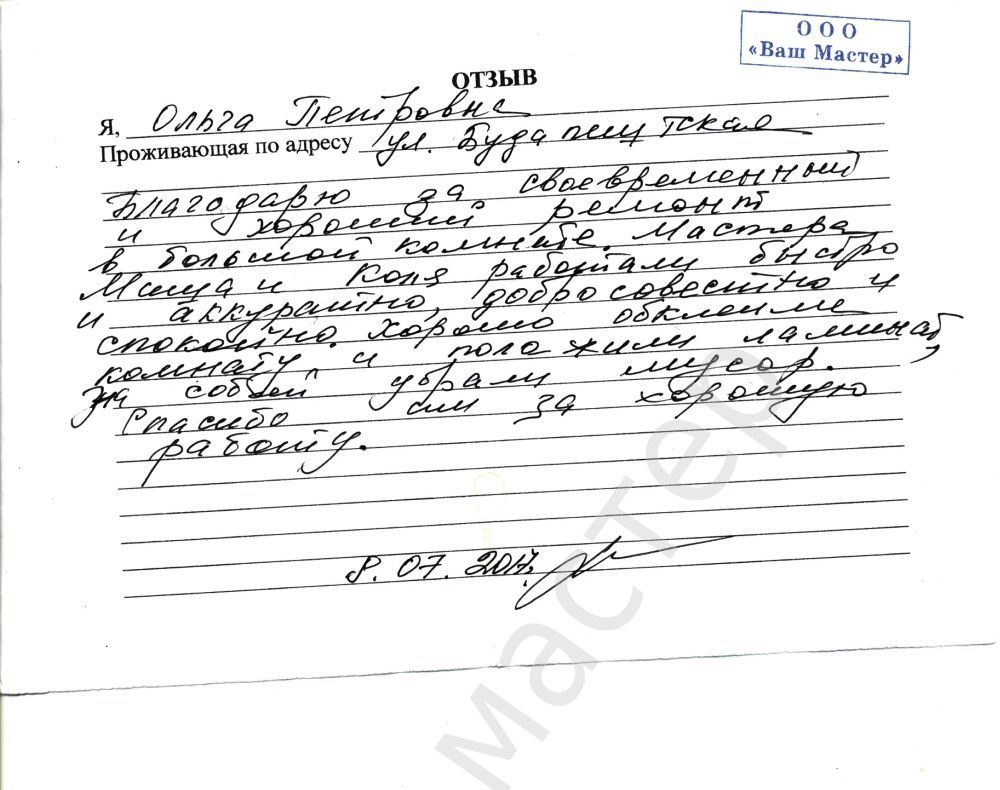 ООО
«Ваш Мастер»
ОТЗЫВ
Я, Ольга Петровна
Проживающая по адресу ул. Будапештская
Благодарю за своевременный
и хороший ремонт
в большой комнате. Мастера
Миша и Коля работали быстро
и аккуратно, добросовестно и
спокойно. Хорошо обклеили
комнату и положили ламинат,
за собой убрали мусор.
Спасибо им за хорошую
работу.
8.07.2017г.
мастер